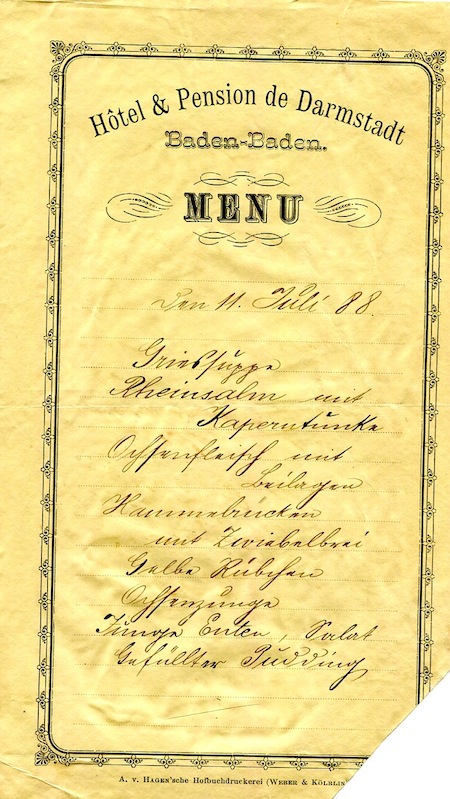 Hôtel & Pension de Darmstadt
Baden-Baden.
MENU
Den 11. Juli 88.
Griessuppe
Rheinsalm mit
Kaperntunke
Ochsenfleisch mit
Beilagen
Hammelrücken
mit Zwiebelbrei
Gelbe Rübchen
Ochsenzunge
Junge Enten, Salat
Gefüllter Pudding
A. v. HAGEN'sche Hofbuchdruckerei (WEBER & KÖLBLIN